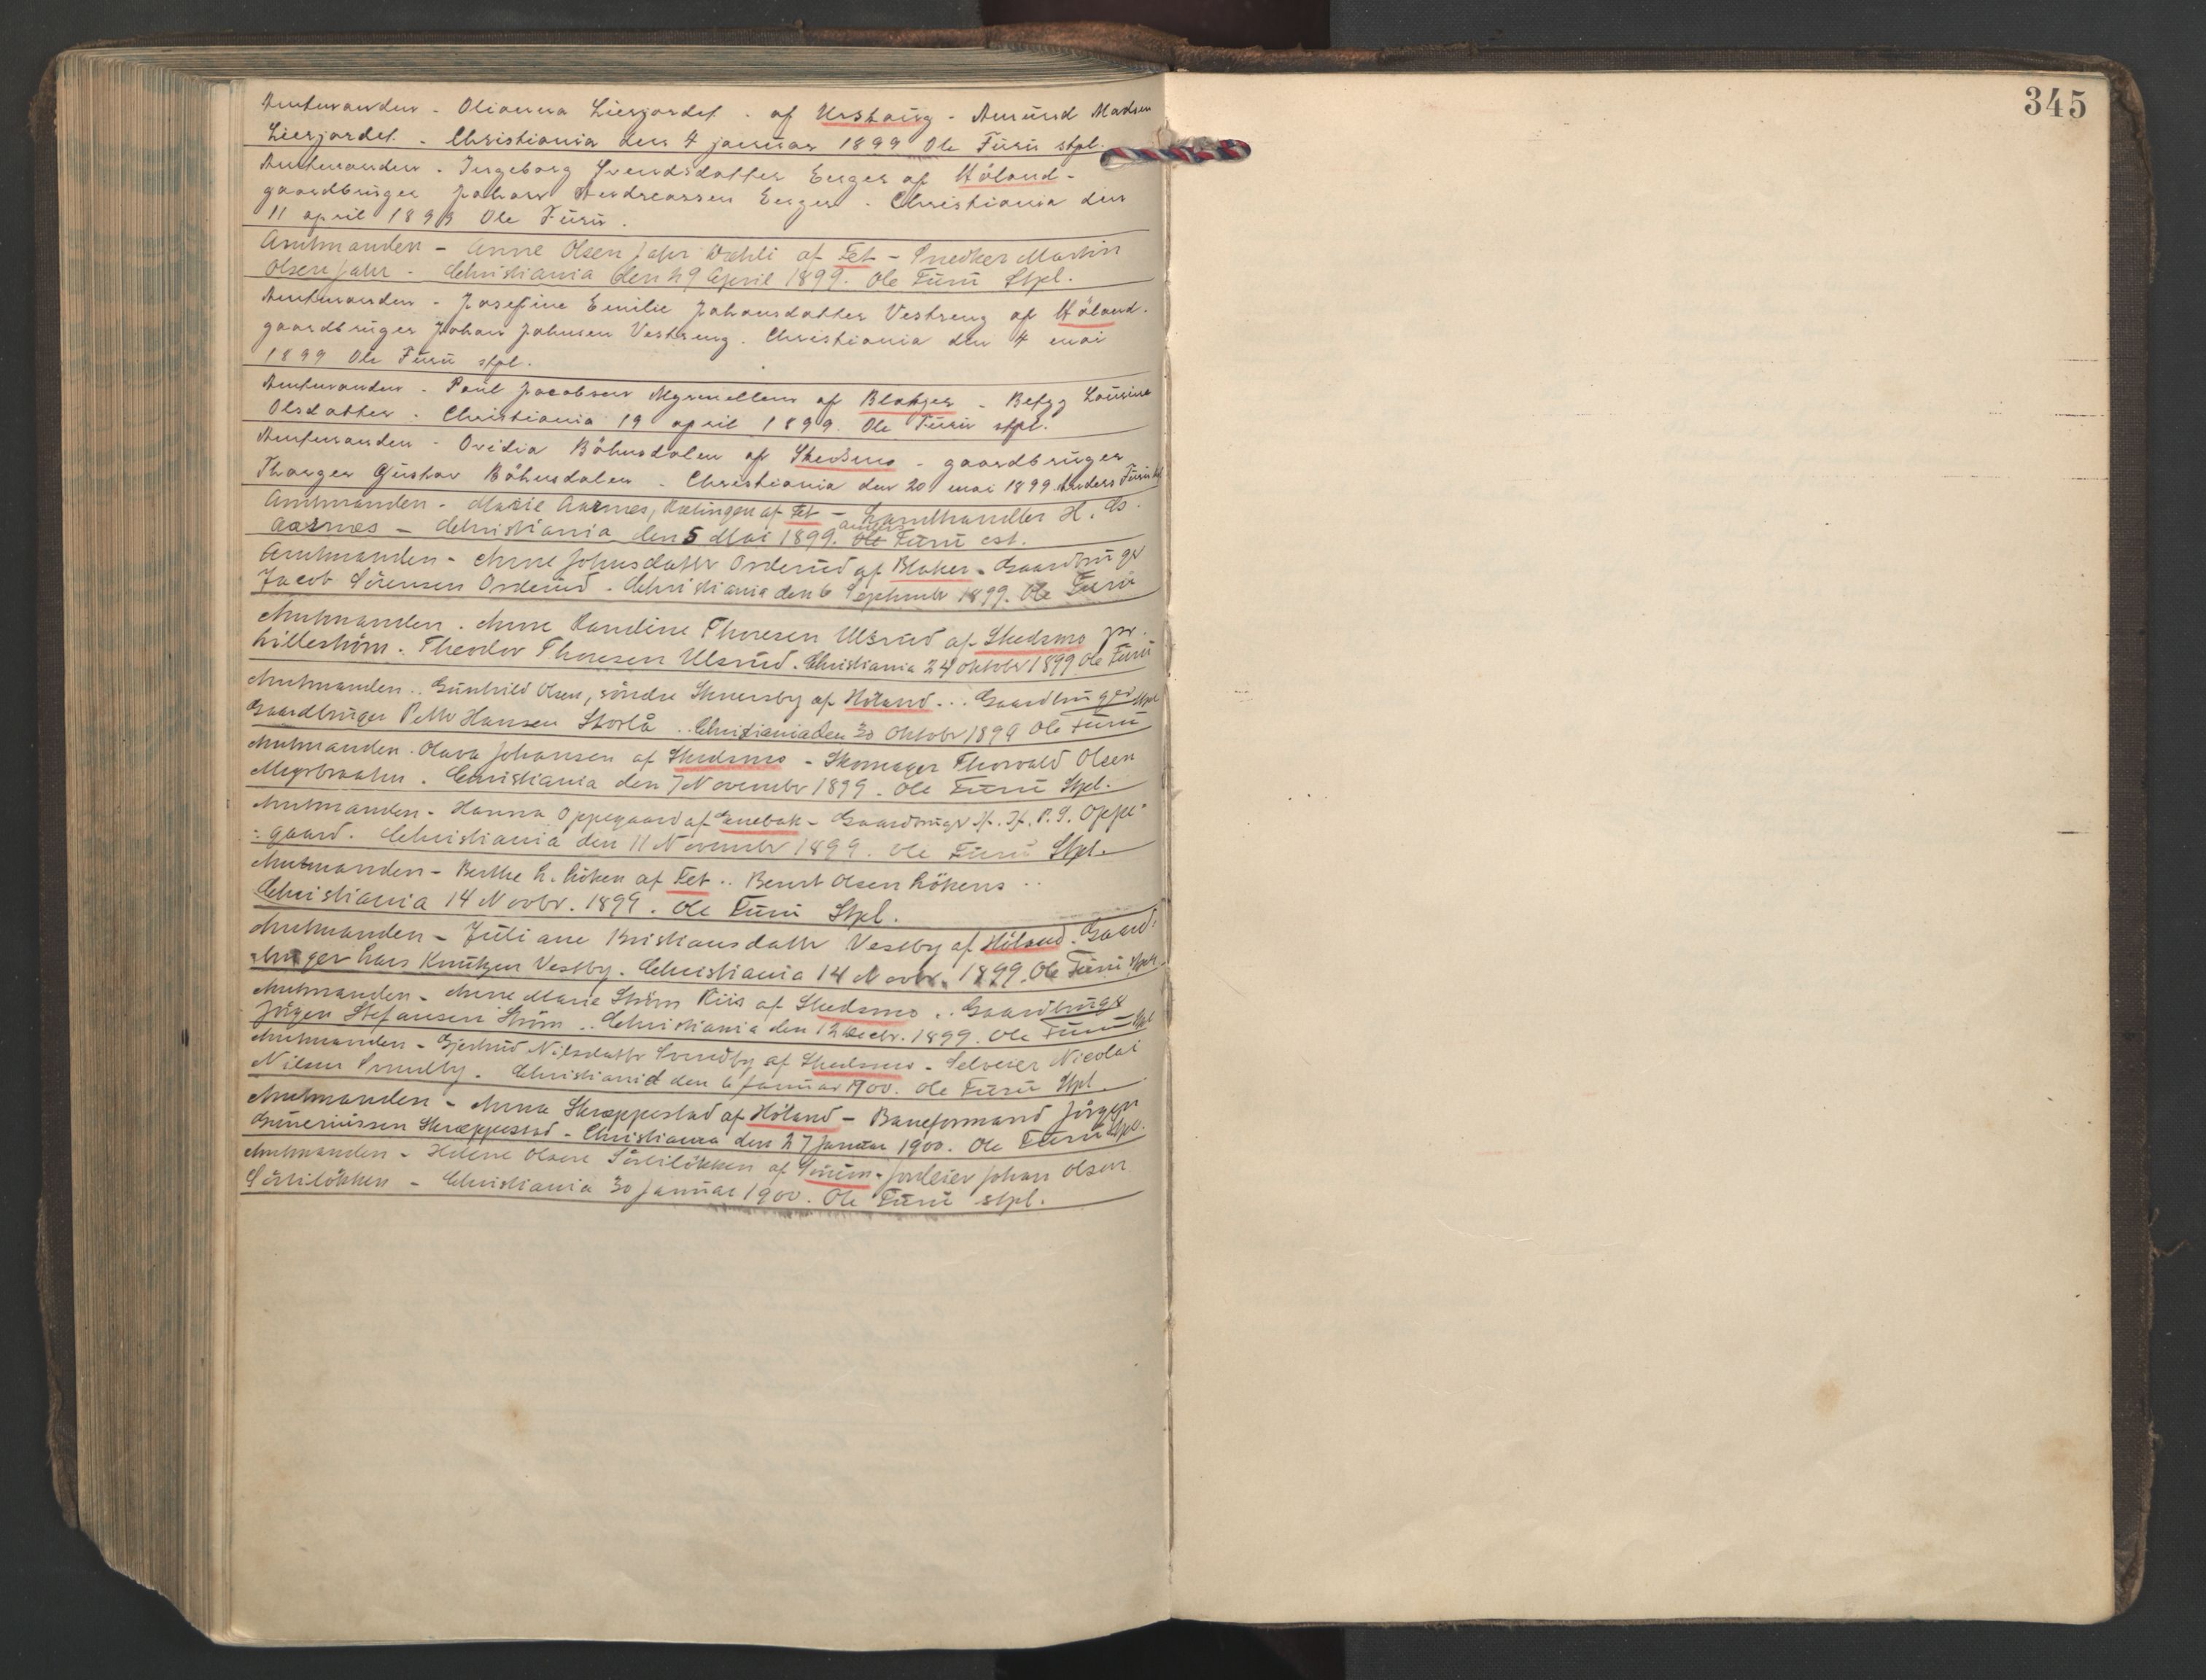 345
Amtmanden - Olianna Lierjordet - af Urskoug - Amund Madsen
Lierjordet - Christiania den 4 januar 1899 Ole Furu stpl.
Amtmanden - Ingeborg Svendsdatter Enger af Höland -
gaardbruger Johan Andreassen Enger - Christiania den
11 april 1899 Ole Furu.
Amtmanden - Anne Olsen Jahr af Fet - Snedker Martin
Olsen Jahr - Christiania den 29 April 1899. Ole Furu Stpl.
Amtmanden - Josefine Emilie Johansdatter Vestreng af Höland -
gaardbruger Johan Johnsen Vestreng. Christiania den 4 mai
1899 Ole Furu stpl.
Amtmanden - Paul Jacobsen Myrmellem af Blakjer - Betzy Lousine
Olsdatter. Christiania 19 april 1899. Ole Furu stpl.
Amtmanden - Ovidia Böhnsdalen af Skedsmo - gaardbruger
Thorger Gustav Böhnsdalen - Christiania den 20 mai 1899. Anders Furu
Amtmanden - Marie Aarnes, Rælingen af Fet - Landhandler H. As.
Aarnes - Christiania den 5 Mai 1899. Anders Ole Furu cst.
Amtmanden - Anne Johnsdatter Orderud af Blaker - Gaardbruger
Jacob Sörensen Orderud - Christiania den 6 September 1899. Ole Furu
Amtmanden. Anne Kandine Thoresen Ulsrud af Skedsmo pr.
Lilleström. Theodor Thoresen Ulsrud. Christiania 24 oktober 1899 Ole Furu
Amtmanden.. Gunhild Olsen, söndre af Höland... Gaardbruger Stpl
Gaardbruger Petter Hansen Storlå.. Christiania den 30 Oktober 1899 Ole Furu
Amtmanden. Olava Johansen af Skedsmo - Skomager Thorvald Olsen
Myrbraaten. Christiania den 7 November 1899. Ole Furu Stpl.
Amtmanden - Hanna Oppegaard af Enebak - Gaardbruger P. S. Oppe-
gaard. Christiania den 11 November 1899. Ole Furu Stpl.
Amtmanden - Berthe L. af Fet.. Bernt Olsen Lökens..
Christiania 14 Novbr. 1899. Ole Furu Stpl.
Amtmanden - Juliane Kristiansdatter Vestby af Höland. Gaard-
bruger Lars Knutzen Vestby. Christiania 14 Novbr. 1899. Ole Furu Stpl.
Amtmanden - Anne Marie Ström Riis af Skedsmo.. Gaardbruger
Jörgen Stefansen Ström.. Christiania den 12 Decbr. 1899. Ole Furu Stpl
Amtmanden - Gjertrud Nilsdatter af Skedsmo - Selveier Nicolai
Nilsen. Christiania den 6 Januar 1900. Ole Furu Stpl.
Amtmanden - Anna Skreppestad af Höland - Baneformand Jörgen
Guneriussen Skreppestad - Christiania den 27 Januar 1900. Ole Furu Stpl.
Amtmanden - Helene Olsen Sörlilökken af Sörum - Jordeier Johan Olsen
Sörlilökken - Christiania 30 Januar 1900. Ole Furu stpl.